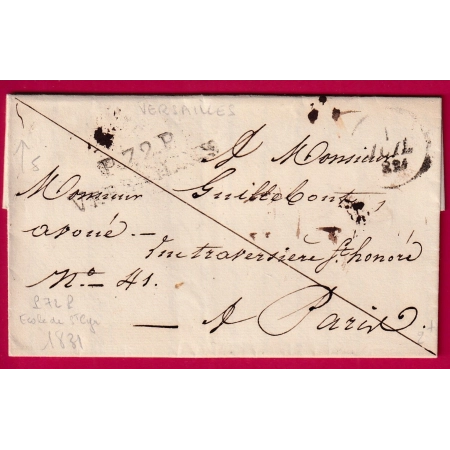 VERSAILLES
P.72.P.
VERSAILLES
A Monsieur
Monsieur Guilleboute
avoué
rue traversière St. honoré
No. 41.
A Paris
P72P
Ecole de St Cyr
1831
5